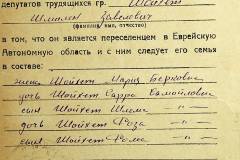 депутатов трудящихся гр. Шойхет
Шмилем Завелевич
(фамилия, имя, отчество)
в том, что он является переселенцем в Еврейскую
Автономную область и с ним следует его семья
в составе:
жена Шойхет Мария Берковна
дочь Шойхет Сарра Самойловна
сын Шойхет Шлема — " —
дочь Шойхет Роза — " —
сын Шойхет Рома — " —